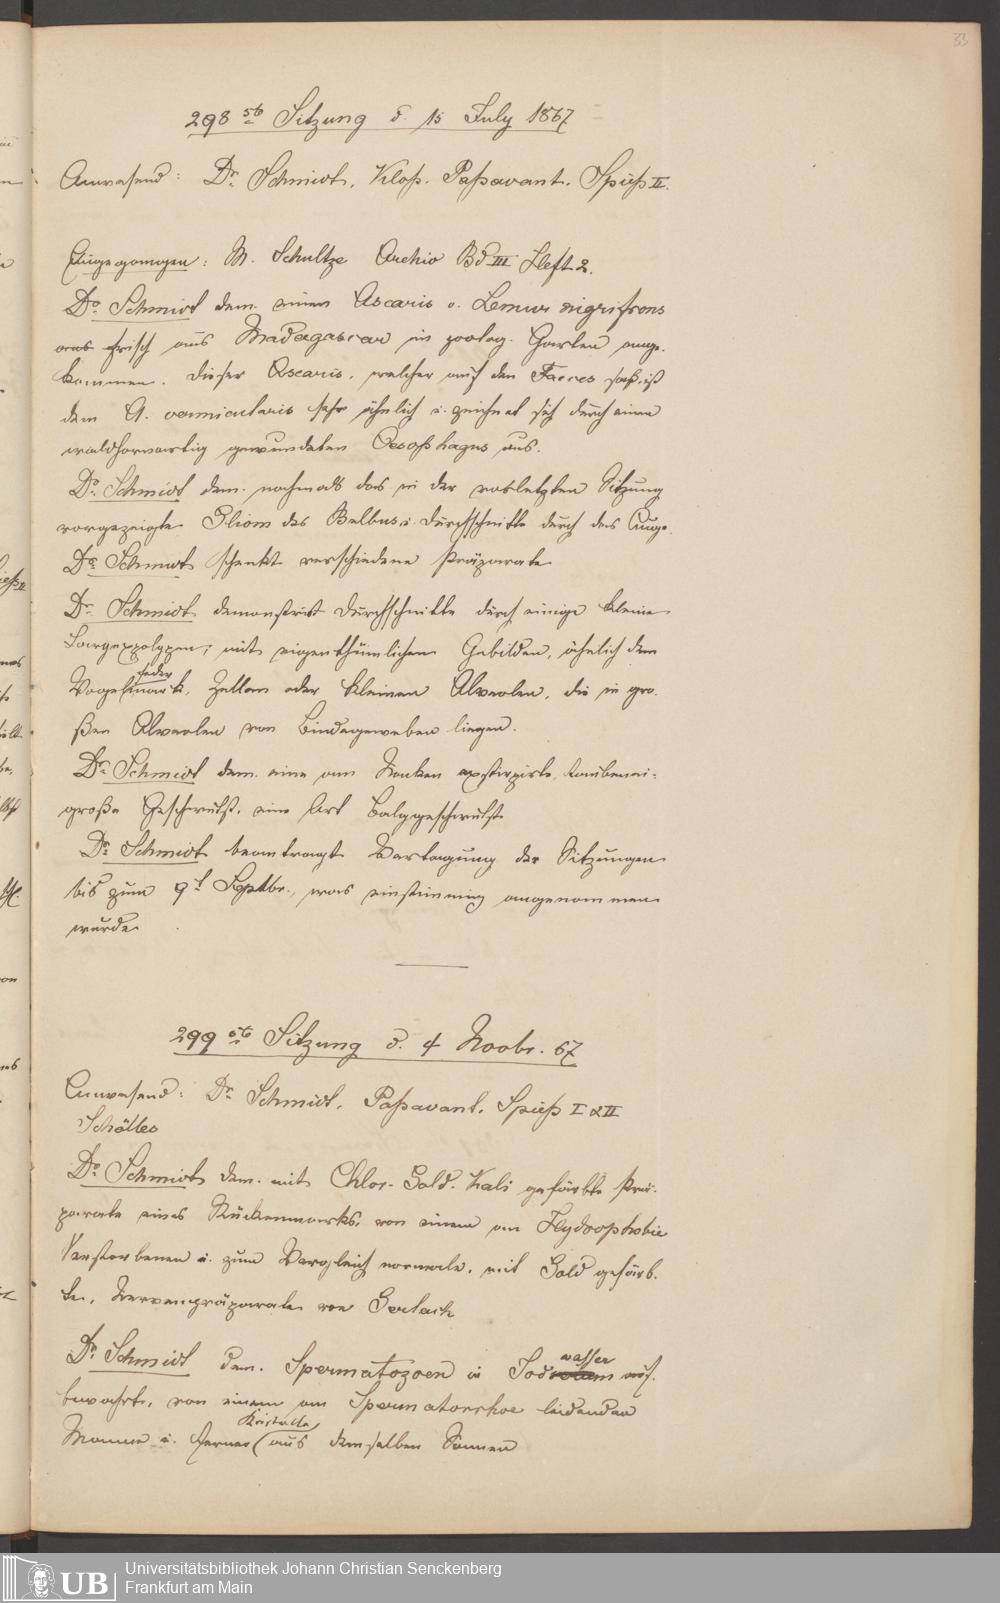 33
298 ste Sitzung d. 15 July 1867
Anwesend: Dr. Schmidt, Kloß. Paßavant. Spieß II.
Eingegangen: M. Schultze Archiv Bd III Heft 2.
Dr. Schmidt dem. einen Ascaris v. Lemur nigrifrons
der frisch aus Madagascar im zoolog. Garten ange-
kommen. Dieser Ascaris, welcher auf den Faeces saß, ist
dem A. vermicularis sehr ähnlich u. zeichnet sich durch einen
waldhornartig gewundenen Oesophagus aus.
Dr. Schmidt dem. nochmals das in der vorletzten Sitzung
vorgezeigte Gliom des Bulbus u. Durchschnitte durch das Auge.
Dr. Schmidt schenkt verschiedene Präparate
Dr. Schmidt demonstrirt Durchschnitte durch einige kleine
Larynxpolypen; mit eigenthümlichen Gebilden, ähnlich dem
Vogelfedermark, Zellen oder kleinen Alveolen, die in gro-
ßen Alveolen von Bindegeweben liegen.
Dr. Schmidt dem. eine am Nacken exstirpirte, taubenei-
große Geschwulst, eine Art Balggeschwulst
Dr. Schmidt beantragt Vertagung der Sitzungen
bis zum 9t Septbr., was einstimmig angenommen
wurde.
299 ste Sitzung d. 4 Novbr. 67
Anwesend: Dr. Schmidt, Paßavant, Spieß I & II
Schölles
Dr. Schmidt dem. mit Chlor-Gold-Kali gefärbte Prä-
parate eines Rückenmarks, von einem an Hydrophobie
Verstorbenen u. zum Vergleich normale, mit Gold gefärb-
te, Nervenpräparate von Gerlach
Dr. Schmidt dem. Spermatozoen in Jodwasser auf-
bewahrt, von einem an Spermatorrhoe leidenden
Manne u. ferner Kristalle aus demselben Samen
UB
Universitätsbibliothek Johann Christian Senckenberg
Frankfurt am Main